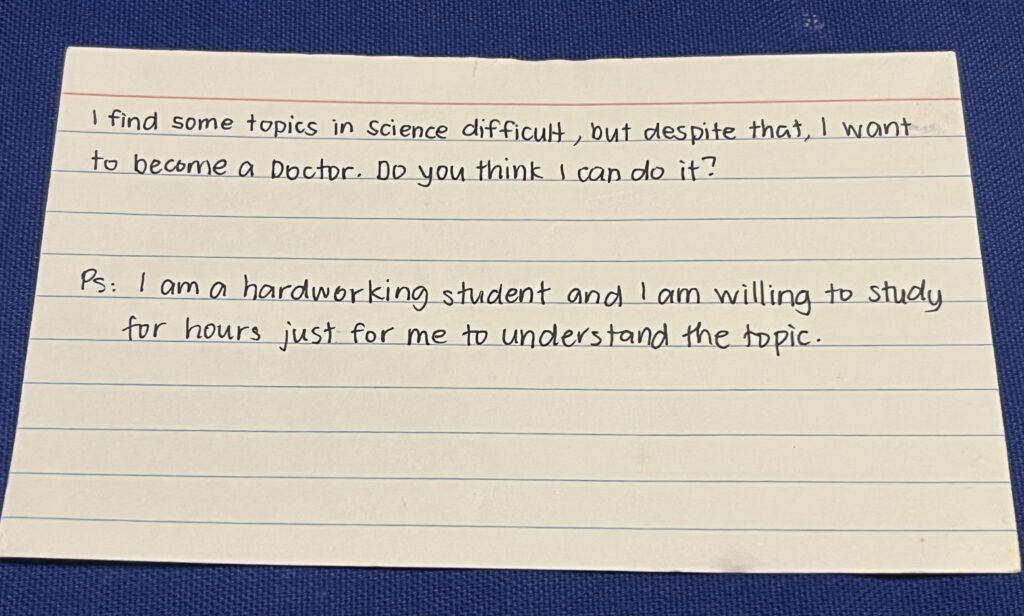 I find some topics in science difficult, but despite that, I want
to become a Doctor. Do you think I can do it?
Ps: I am a hardworking student and I am willing to study
for hours just for me to understand the topic.